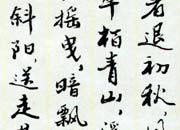 者退初秋，
柏青山，
摇曳，暗飘
斜阳，送走